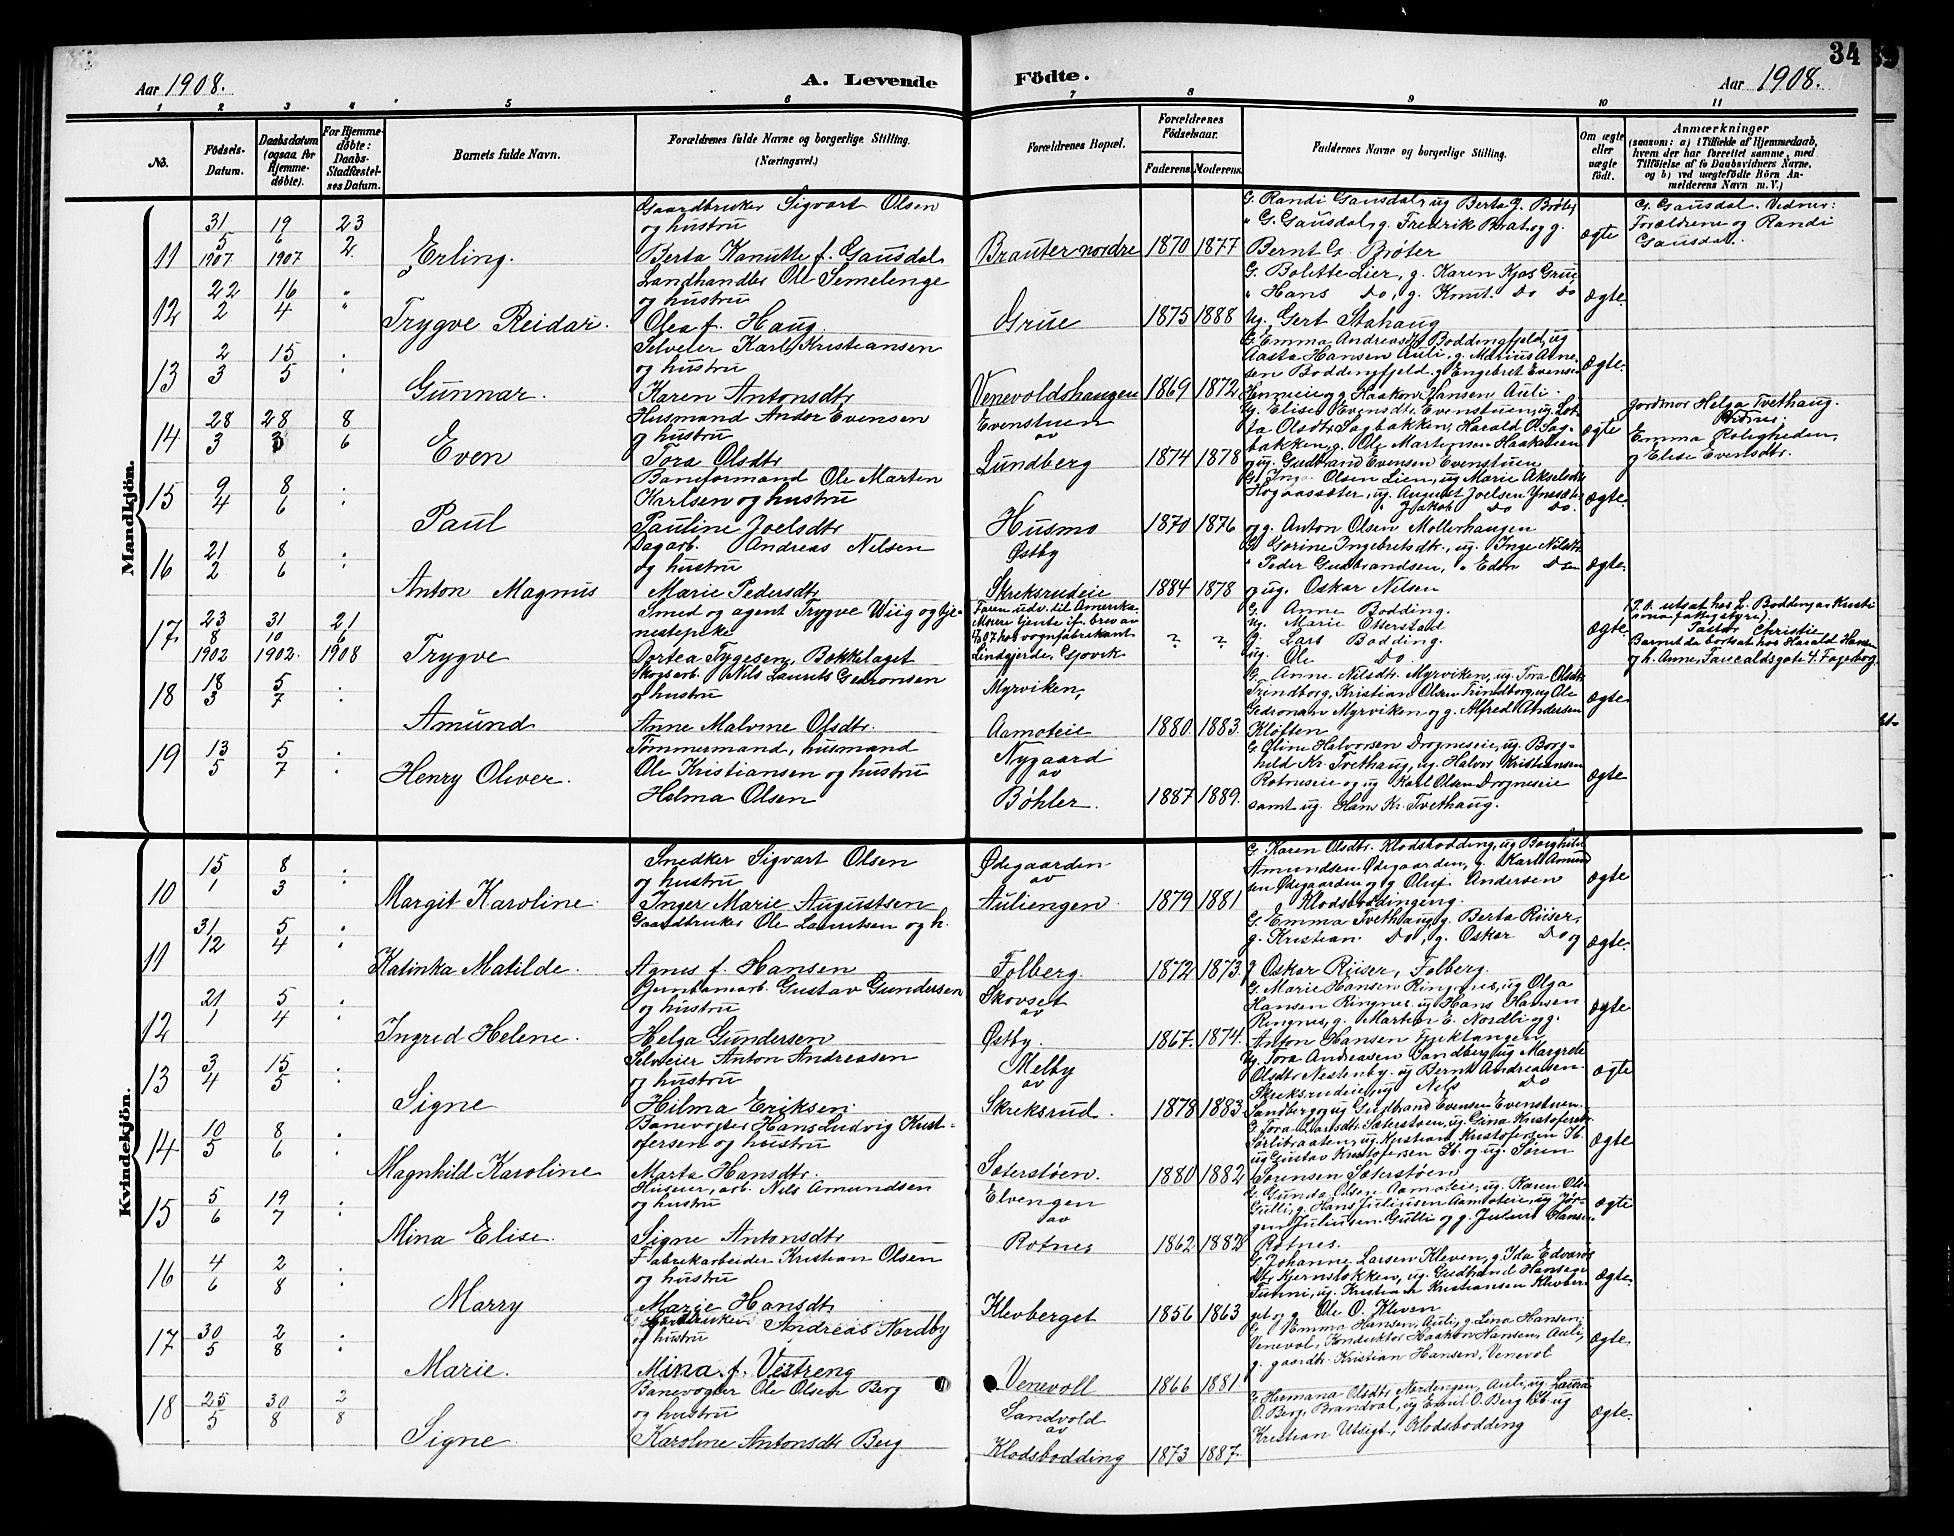 34
Aar 1908.
A. Levende Födte.
Aar 1908.
1 2 3 4 5 6 7 8 9 10 11
No.
Födsels-Datum.
Daabsdatum (ogsaa for Hjemme-døbte).
For Hjemme-døbte: Daabs-Stadfæstel-ses Datum.
Barnets fulde Navn.
Forældrenes fulde Navne og borgerlige Stilling. (Næringsvei.)
Forældrenes Bopæl.
Forældrenes Födselsaar.
Faderens. Moderens.
Faddernes Navne og borgerlige Stilling.
Om ægte eller uægte födt.
Anmærkninger
Mandkjön.
11 31/5 1907 19/6 1907 23/2
Erling.
Gaardbruker Sigvart Olsen
og hustru
Berta Kanutte f. Gausdal
Brauter nordre 1870 1877
G. Randi Gausdal, ug Berta G. Brøter,
" G. Gausdal, g. Fredrik Prat og g.
Bernt G. Brøter
ægte
G. Gausdal. Vidner:
Forældrene og Randi
Gausdal.
12 22/2 16/4 "
Trygve Reidar.
Landhandler Ole Semelenge
og hustru
Olea f. Haug.
Grue 1875 1888
G. Bolette Lier, g. Karen Kjos Grue,
" Hans Do, g. Knut Do Do
Ug. Gert Stahaug
ægte.
13 2/3 15/5 "
Gunnar.
Selveier Karl Kristiansen
og hustru
Karen Antonsdtr
Venevoldshaugen 1869 1872
G. Emma Andreasdtr Boddingfjeld, ug
Aasta Hansen Auli, g. Marius Arne-
sen Boddingfjeld, g Engebret Evensen
og Haakon Hansen Auli.
ægte.
14 28/3 28/3 8/6
Even
Husmand Andor Evensen
og hustru
Tora Olsdtr
Evenstuen
av
Lundberg 1874 1878
Ug. Elise Evensdtr Evenstuen, ug. Lot-
ta Olsdtr Sagbakken, Harald O. Sag-
bakken, g. Ole Martinsen Haakensen
og ug. Gudbrand Evensen Evenstuen
ægte
Jordmor Helga Tvethaug.
Vidner:
Emma Roligheden,
og Elise Evensdtr.
15 9/4 8/6 "
Paul
Baneformand Ole Marten
Karlsen og hustru
Pauline Joelsdtr
Husmo 1870 1876
Olsen Lien, ug Marie Akselsdtr
Hogaassæter, ug. August Joelsen
" Jakob Do Do.
og g. Anton Olsen Møllerhaugen
ægte.
16 21/2 8/6 "
Anton Magnus
Dagarb. Andreas Nilsen
og hustru
Marie Pedersdtr
Østby
Skreksrudeie 1884 1878
G. Gorine Ingebretsdtr., ug. Inga Nilsdtr
" Peder Gudbrandsen,
og ug. Oskar Nilsen
ægte.
17 23/8 1902 31/10 1902. 21/6 1908
Trygve
Smed og agent Trygve Wiig og tje-
nestepike
Dortea Tygesen, Bakkelaget
Faren udv. til Amerika.
Moren tjente if. brev av
1907 hos vognfabrikant
Lindgjerde, Gjøvik
? ?
G. Anne Bodding.
Ug. Marie Otterstad
G. Lars Bodding.
ug. Ole Do.
ægte.
Pastor Christie
Barnet da bortsat hos Harald Hansen
og h. Anne, Faucaldsgate 4. Fageborg
18 18/3 5/7 "
Amund
Skogsarb. Nils Laurits Gedronsen
og hustru
Anne Malvine Olsdtr.
Myrviken,
Aamoteie 1880 1883.
G. Anne Nilsdtr. Myrviken, ug. Tora Olsdtr
Trindborg, Kristian Olsen Trindborg, ug Ole
Gedronsen Myrviken og g. Alfred Andersen
Kløften
ægte.
19 13/5 5/7 "
Henry Oliver.
Tømmermand, husmand
Ole Kristiansen og hustru
Helma Olsen
Nygaard
av
Bøhler. 1887 1889.
G. Oline Halvorsen Drogneseie, ug. Borg-
hild Kr. Tvethaug, ug. Halvor Kristiansen
Rotneseie og ug Karl Olsen Drogneseie
samt ug. Hans Kr. Tvethaug.
ægte
Kvindekjön.
10 15/1 8/3 "
Margit Karoline.
Snedker Sigvart Olsen
og hustru
Inger Marie Augustsen
Ødegaarden
av
Auliengen. 1879 1881
G. Karen Olsdtr. Klodsbodding, ug Borghild
Amundsen Ødegaarden, g. Karl Amund-
sen Ødegaarden og g Oluf Andersen
Klodsbodding.
ægte
11 31/12 5/4 "
Katinka Matilde.
Gaardbruker Ole Lauritsen og h.
Agnes f. Hansen
Folberg. 1872 1873.
G. Emma Tvethaug g. Berta Riiser,
g. Kristian Do, g. Oskar Do og
Oskar Riiser, Folberg.
ægte.
12 21/1 5/4 "
Ingrid Helene.
Jernbanearb. Gustav Gundersen
og hustru
Helga Gundersen
Skovset
av
Østby. 1867. 1874.
G. Marie Hansen Ringnes, ug Olga
Hansen Ringnes, ug Hans Hansen
Ringnes, g. Martin E. Nordli og g.
Anton Hansen
ægte
13 3/4 15/5 "
Signe
Selveier Anton Andreasen
og hustru
Hilma Eriksen.
Melby
av
Skreksrud. 1878 1883.
Ug. Tora Andreasen Sandberg, ug Margrete
Olsdtr Nestenby. ug Bernt Andreasen
Skreksrudeie, ug Nels Do
Sandberg og ug Gudbrand Evensen Evenstuen.
ægte
14 10/5 8/6 "
Magnhild Karoline
Banevogter Hans Ludvig Krist-
ofersen og hustru
Marta Hansdtr.
Sæterstøen. 1880 1882
G. Tora Larsdtr. Sæterstøen, ug. Gina Kristofersdtr
Sørlibraaten, ug. Kristian Kristofersen Ib.
ug Gustav Kristofersen Ib. og ug. Søren
Sørensen Sæterstøen
ægte
15 5/6 19/7 "
Mina Elise.
Huseier, arb. Nils Amundsen
og hustru
Signe Antonsdtr
Elvengen
av
Rotnes 1862 1882
G. Gunda Olsen Aamoteie, ug. Karen Ols-
Gulli, g. Hans Juliussen Aamoteie, ug Jør-
gen Juliussen Gulli og g. Julius Hansen
Rotnes.
ægte
16 4/6 2/8 "
Marry
Fabrikarbeider Kristian Olsen
og hustru
Marie Hansdtr
Klevberget 1856 1863
G. Johanne Larsen Kleven, g. Ida Edvards-
dtr Kjernsløkken, ug. Gudbrand Hansen
ug. Kristian Kristiansen Klevber-
get og g. Ole O. Kleven
ægte.
17 30/5 2/8 "
Marie.
Gaardbruker Andreas Nordby
og hustru
Mina f. Vestreng
Venevoll 1866 1881
G. Emma Hansen, Auli, g. Lina Hansen,
Venevol, Konduktør Haakon Hansen, Auli,
g. gaardbr. Kristian Hansen, Venevol
ægte.
18 25/5 30/8 2/8
Signe
Banevogter Ole Olsen Berg
og hustru
Karoline Antonsdtr Berg
Sandvold
av
Klodsbodding 1873 1887.
G. Hermana Olsdtr, Nordengen, Auli, ug. Laura
O. Berg, Brandval, ug Emil O. Berg Ib. ug
Kristian Utsigt, Klodsbodding
ægte.